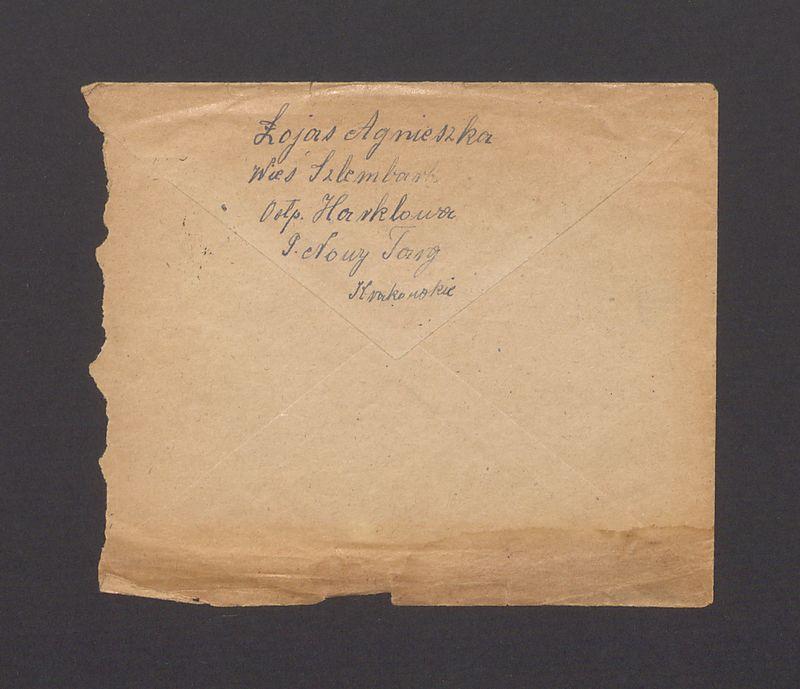 Łojas Agnieszka
Wieś Szlembark
Ostp. Harklowa
P. Nowy Targ
Krakowskie